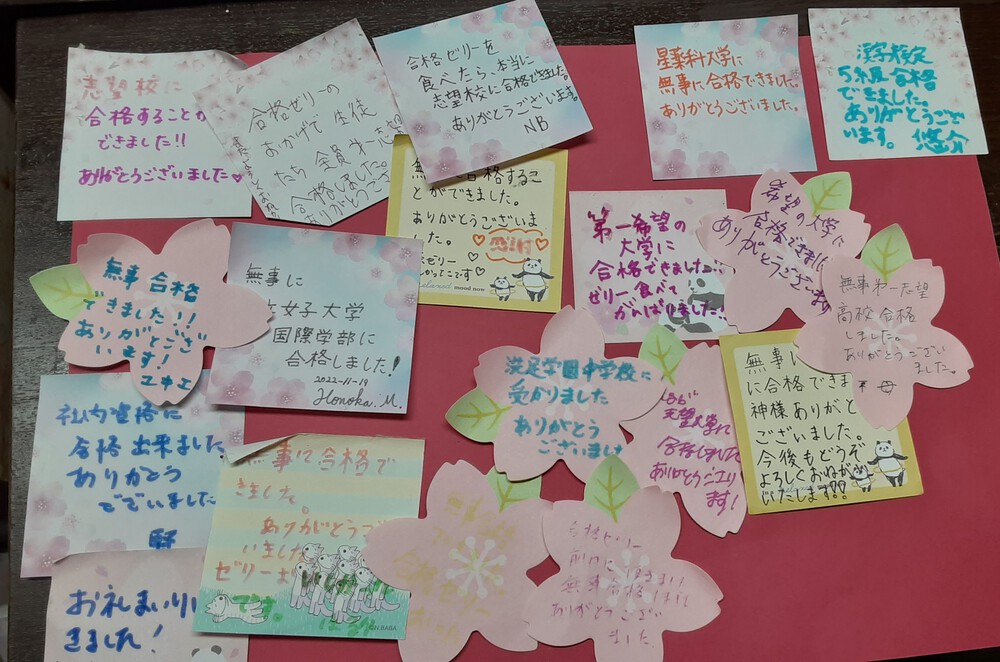 志望校に
合格することが
できました!!
ありがとうございました♡
合格ゼリーの
おかげで 生徒
たち 全員 第一志望
合格しました。
ありがとうござ
合格ゼリーを
食べたら、本当に
志望校に合格できました。
ありがとうございます。
NB
星薬科大学に
無事に合格できました。
ありがとうございました。
漢字検定
5級合格
できました。
ありがとうござ
います。 悠介
合格するこ
とができました。
ありがとうございま
した。
感謝
ゼリー
第一希望の
大学に
合格できました!!
ゼリー食べて
がんばりました!
希望の大学に
合格できました
ありがとうございます
無事第一志望
高校合格
しました。
ありがとうござい
ました。
母
無事合格
できました!!
ありがとうござ
います!
ユキエ
無事に
女子大学
国際学部に
合格しました!
2022-11-19
Honoka.M.
洗足学園中学校に
受かりました
ありがとう
ございました
志望大学に
合格しました
ありがとうござい
ます!
無事に
に合格できま
神様ありがと
ございました。
今後もどうぞ
よろしくおねがい
いたします!!
社内資格に
合格出来ました
ありがとう
でざいました
無事に合格で
きました。
ありがとうござ
いました
ゼリーお
です。
合格ゼリー
無事合格しました
ありがとうござい
ました
お礼まいりに
きました!